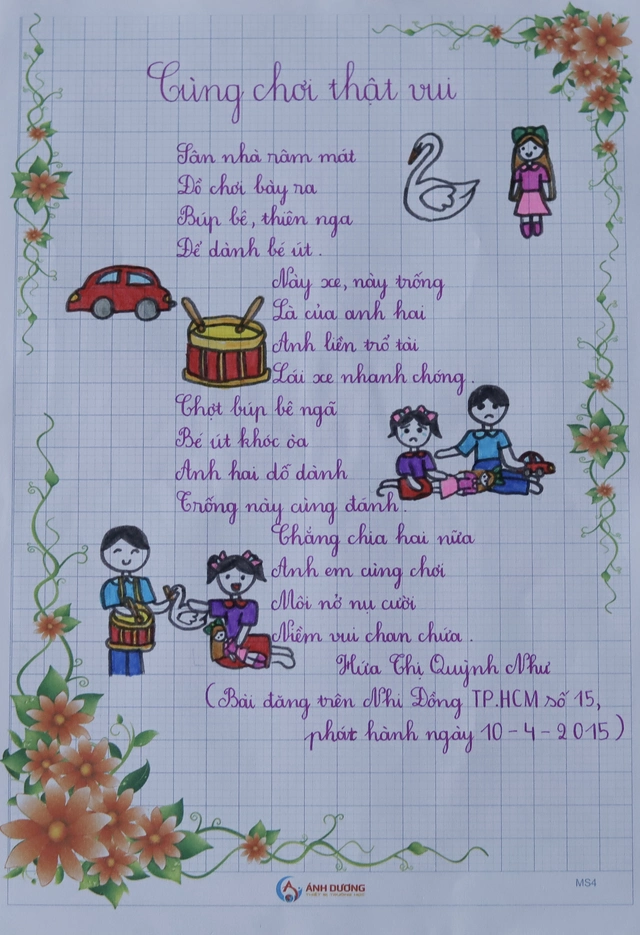 Cùng chơi thật vui
Sân nhà râm mát
Đồ chơi bày ra
Búp bê, thiên nga
Để dành bé út.
Này xe, này trống
Là của anh hai
Anh liền trổ tài
Lái xe nhanh chóng.
Chợt búp bê ngã
Bé út khóc òa
Anh hai dỗ dành
Trống này cùng đánh.
Chẳng chia hai nữa
Anh em cùng chơi
Môi nở nụ cười
Niềm vui chan chứa.
Hứa Thị Quỳnh Như
(Bài đăng trên Nhi Đồng TP.HCM số 15,
phát hành ngày 10-4-2015)
ÁNH DƯƠNG
THIẾT BỊ TRƯỜNG HỌC
MS4